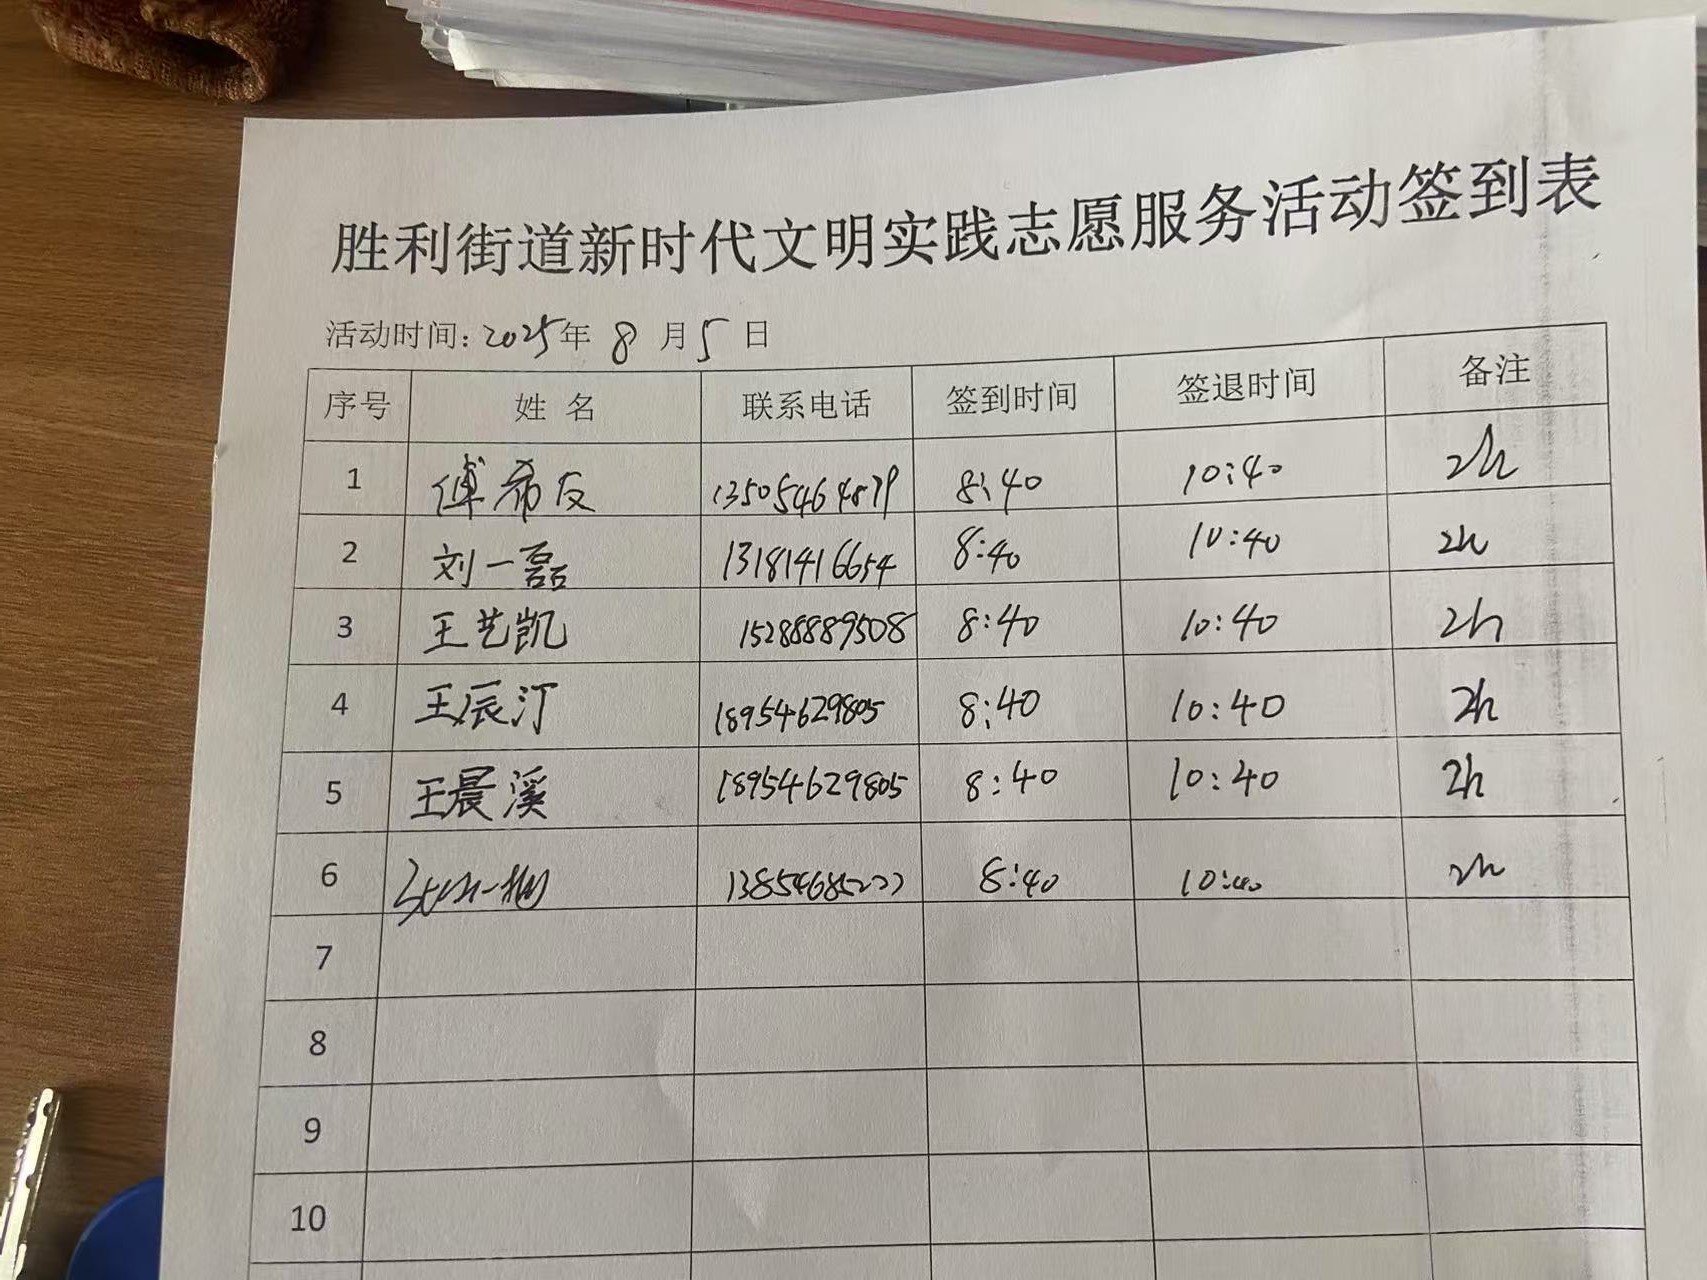 胜利街道新时代文明实践志愿服务活动签到表
活动时间：2025年 8 月 5 日
序号 姓 名 联系电话 签到时间 签退时间 备注
1 傅希友 13505464879 8:40 10:40 2h
2 刘一磊 13181416654 8:40 10:40 2h
3 王艺凯 15288889508 8:40 10:40 2h
4 王辰汀 18954629805 8:40 10:40 2h
5 王晨溪 18954629805 8:40 10:40 2h
6 13854685222 8:40 10:40 2h
7
8
9
10